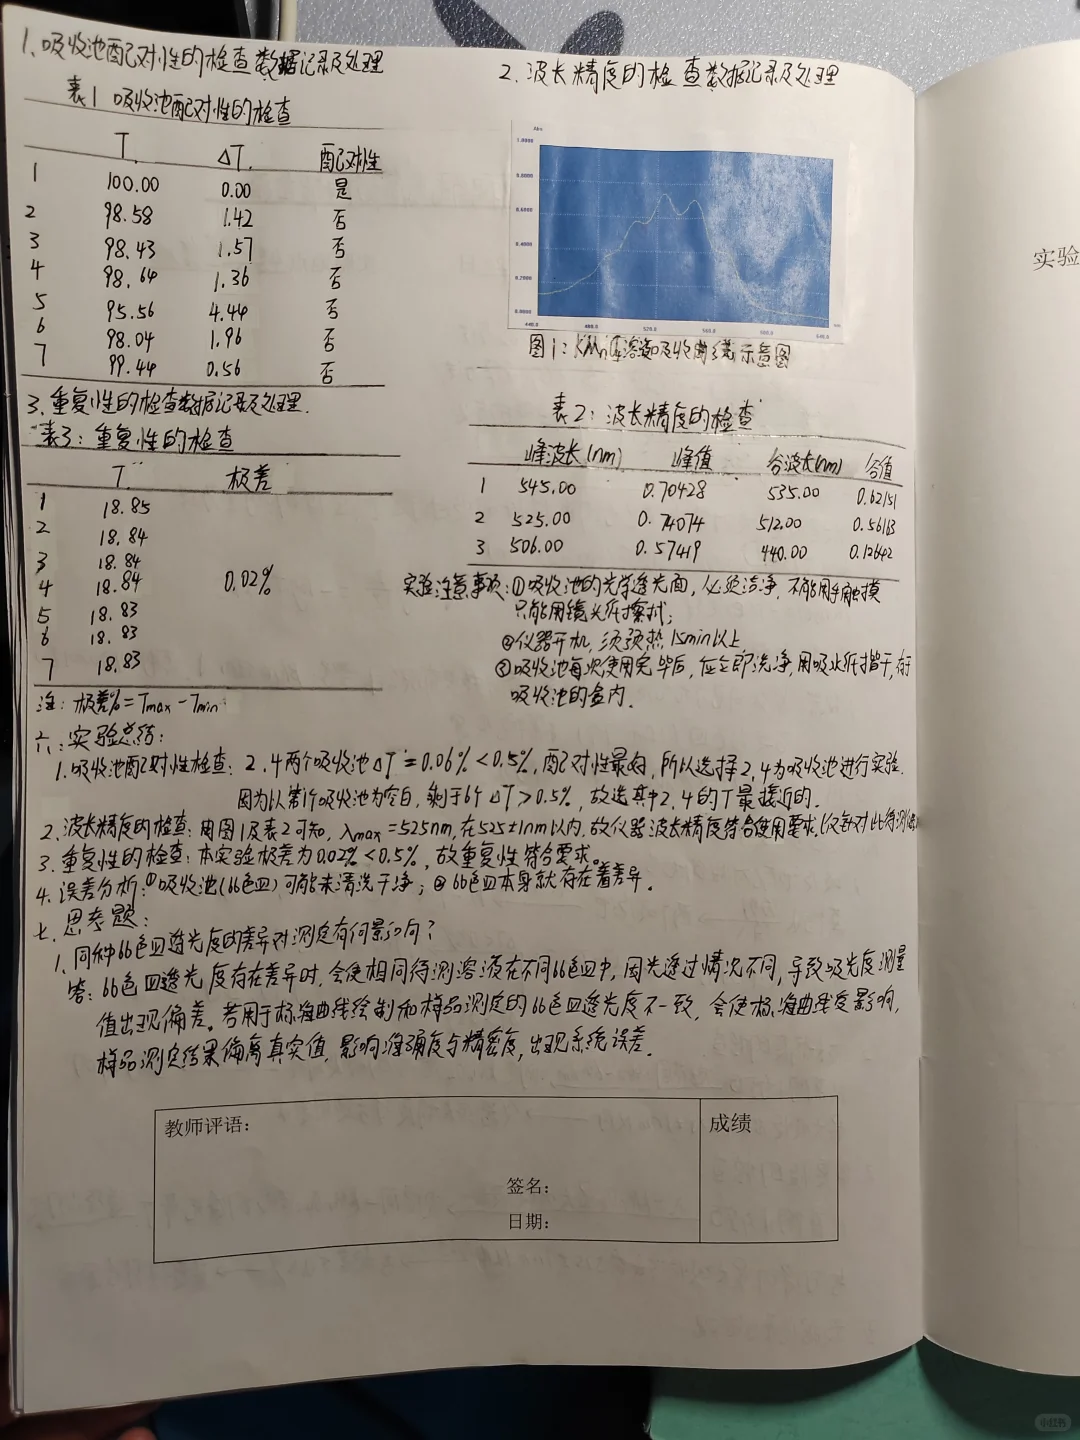 1、吸收池配对性的检查数据记录及处理
表1 吸收池配对性的检查
T. ΔT. 配对性
1 100.00 0.00 是
2 98.58 1.42 否
3 98.43 1.57 否
4 98.64 1.36 否
5 95.56 4.44 否
6 98.04 1.96 否
7 99.44 0.56 否
3、重复性的检查数据记录及处理.
表3:重复性的检查
T. 极差
1 18.85
2 18.84
3 18.84
4 18.84 0.02%
5 18.83
6 18.83
7 18.83
注:极差%=Tmax-Tmin
2、波长精度的检查数据记录及处理
Abs
1.0000
0.8000
0.6000
0.4000
0.2000
0.0000
440.0 480.0 520.0 560.0 600.0 640.0
图1:溶液吸收曲线示意图
表2:波长精度的检查
峰波长(nm) 峰值 谷波长(nm) 谷值
1 545.00 0.70428 535.00 0.62151
2 525.00 0.74074 512.00 0.56183
3 506.00 0.57419 440.00 0.12642
实验注意事项:①吸收池的光学透光面,必须洁净,不能用手触摸
只能用镜头纸擦拭;
②仪器开机,须预热15min以上
③吸收池每次使用完毕后,应立即洗净,用吸水纸揩干,存于
吸收池的盒内.
六:实验总结:
1.吸收池配对性检查:2,4两个吸收池ΔT=0.06%<0.5%,配对性最好,所以选择2,4为吸收池进行实验.
因为以第1个吸收池为空白,剩于6个ΔT>0.5%,故选其中2,4的T最接近的.
2、波长精度的检查:由图1及表2可知,λmax=525nm,在525±1nm以内.故仪器波长精度符合使用要求.(仅针对此待测
3、重复性的检查:本实验极差为0.02%<0.5%,故重复性符合要求。
4、误差分析:①吸收池(比色皿)可能未清洗干净;②比色皿本身就存在着差异.
七、思考题:
1、同种比色皿透光度的差异对测定有何影响?
答:比色皿透光度存在差异时,会使相同待测溶液在不同比色皿中,因光透过情况不同,导致吸光度测量
值出现偏差。若用于标准曲线绘制和样品测定的比色皿透光度不一致,会使标准曲线受影响,
样品测定结果偏离真实值,影响准确度与精密度,出现系统误差.
教师评语:
成绩
签名:
日期:
实验
小红书